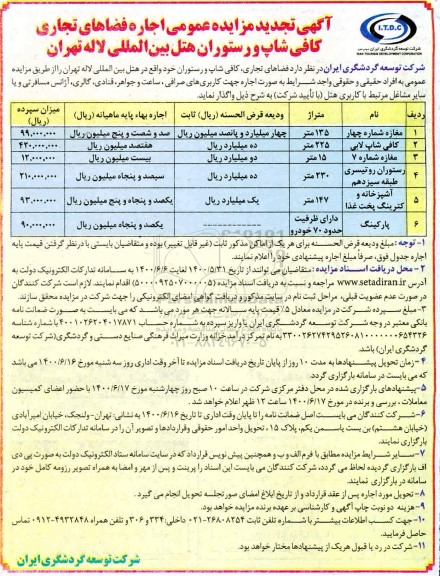 آگهی تجدید مزایده عمومی اجاره فضاهای تجاری
کافی شاپ و رستوران هتل بین المللی لاله تهران
I.T.D.C
شرکت توسعه گردشگری ایران
شرکت توسعه گردشگری ایران در نظر دارد فضاهای تجاری، کافی شاپ و رستوران خود واقع در هتل بین المللی لاله تهران را از طریق مزایده
عمومی به افراد حقیقی و حقوقی واجد شرایط به صورت اجاره جهت کاربری‌های صرافی، ساعت و جواهر، قنادی، گالری، آژانس مسافرتی و یا
سایر مشاغل مرتبط با کاربری هتل (با تأیید شرکت) به شرح ذیل واگذار نماید.
ردیف نام متراژ ودیعه قرض الحسنه (ریال) ثابت اجاره بهاء پایه ماهیانه (ریال) میزان سپرده (ریال)
۱ مغازه شماره چهار ۱۳۵ متر چهار میلیارد و پانصد میلیون ریال صد و شصت و پنج میلیون ریال ۹۹,۰۰۰,۰۰۰
۲ کافی شاپ لابی ۲۲۵ متر ده میلیارد ریال هفتصد میلیون ریال ۴۲۰,۰۰۰,۰۰۰
۳ مغازه شماره ۷ ۱۵ متر دو میلیارد ریال بیست میلیون ریال ۱۲,۰۰۰,۰۰۰
۴ رستوران روتیسری طبقه سیزدهم ۲۳۰ متر ده میلیارد ریال سیصد و پنجاه میلیون ریال ۲۱۰,۰۰۰,۰۰۰
۵ آشپزخانه و کترینگ پخت غذا ۱۴۷ متر یک میلیارد ریال یکصد و پنجاه و پنج میلیون ریال ۹۳,۰۰۰,۰۰۰
۶ پارکینگ دارای ظرفیت حدود ۷۰ خودرو ---------- یکصد و پنجاه میلیون ریال ۹۰,۰۰۰,۰۰۰
۱- توجه: مبلغ ودیعه قرض الحسنه برای هر یک از اماکن مذکور ثابت (غیر قابل تغییر) بوده و متقاضیان بایستی با در نظر گرفتن قیمت پایه
اجاره جدول فوق، صرفاً مبلغ اجاره پیشنهادی خود را اعلام نمایند.
۲- محل دریافت اسناد مزایده: متقاضیان می توانند از تاریخ ۱۴۰۰/۵/۳۱ لغایت ۱۴۰۰/۶/۶ به سامانه تدارکات الکترونیک دولت به
آدرس www.setadiran.ir مراجعه و نسبت به دریافت اسناد مزایده اقدام نمایند. لازم است شرکت کنندگان
در صورت عدم عضویت قبلی، مراحل ثبت نام در سایت مذکور و دریافت گواهی امضای الکترونیکی را جهت شرکت در مزایده محقق سازند.
۳- مبلغ سپرده شرکت در مزایده معادل ۵٪ قیمت پایه سالانه جهت هر مورد می باشد که می بایست به صورت ضمانت نامه
بانکی معتبر در وجه شرکت توسعه گردشگری ایران یا واریز سپرده به شماره حساب
به نام تمرکز درآمد خزانه وزارت میراث فرهنگی صنایع دستی و گردشگری (شرکت توسعه
گردشگری ایران) باشد.
۴- زمان تحویل پیشنهادها به مدت ۱۰ روز از پایان تاریخ دریافت اسناد مزایده تا آخر وقت اداری روز سه شنبه مورخ ۱۴۰۰/۶/۱۶ می باشد
که می بایست در سامانه بارگزاری گردد.
۵- پیشنهادهای بارگزاری شده در محل دفتر مرکزی شرکت در ساعت ۱۰ صبح روز چهارشنبه مورخ ۱۴۰۰/۶/۱۷ با حضور اعضای کمیسیون
معاملات، بررسی و برنده در مورخ ۱۴۰۰/۶/۱۷ ساعت ۱۲ ظهر اعلام خواهد شد.
۶- شرکت کنندگان می بایست اصل ضمانت نامه را تا پایان وقت اداری تا تاریخ ۱۴۰۰/۶/۱۶ به نشانی: تهران- ولنجک، خیابان امیرآبادی
(خیابان هشتم)، بن بست یاسمن یکم، پلاک ۱۵، تحویل واحد امور حقوقی و قراردادها و تصویر آن را در سامانه تدارکات الکترونیک دولت
بارگزاری نمایند.
۷- سایر شرایط مزایده مطابق با فرم الف و ب و همچنین پیش نویس قرارداد که در سایت سامانه ستاد الکترونیک دولت به صورت پی دی
اف بارگزاری گردیده لحاظ می گردد، شرکت کنندگان می بایست این اسناد را پرینت و پس از مهر و امضا به همراه تصویر رزومه کامل خود در
سامانه بارگزاری نمایند.
۸- تحویل مورد اجاره پس از عقد قرارداد و از تاریخ ابلاغ امضای صورتجلسه تحویل انجام می گیرد.
۹- هزینه دو نوبت چاپ آگهی و کارشناسی بر عهده برنده مزایده خواهد بود.
۱۰- جهت کسب اطلاعات بیشتر با شماره تلفن ثابت ۲۶۸۰۸۲۵۴-۰۲۱ داخلی: ۳۳۴ و ۳۰۶ و تلفن همراه ۴۹۳۲۸۴۸-۰۹۱۲ تماس
حاصل فرمایید.
۱۱- شرکت در رد یا قبول هر یک از پیشنهادها مختار خواهد بود.
شرکت توسعه گردشگری ایران